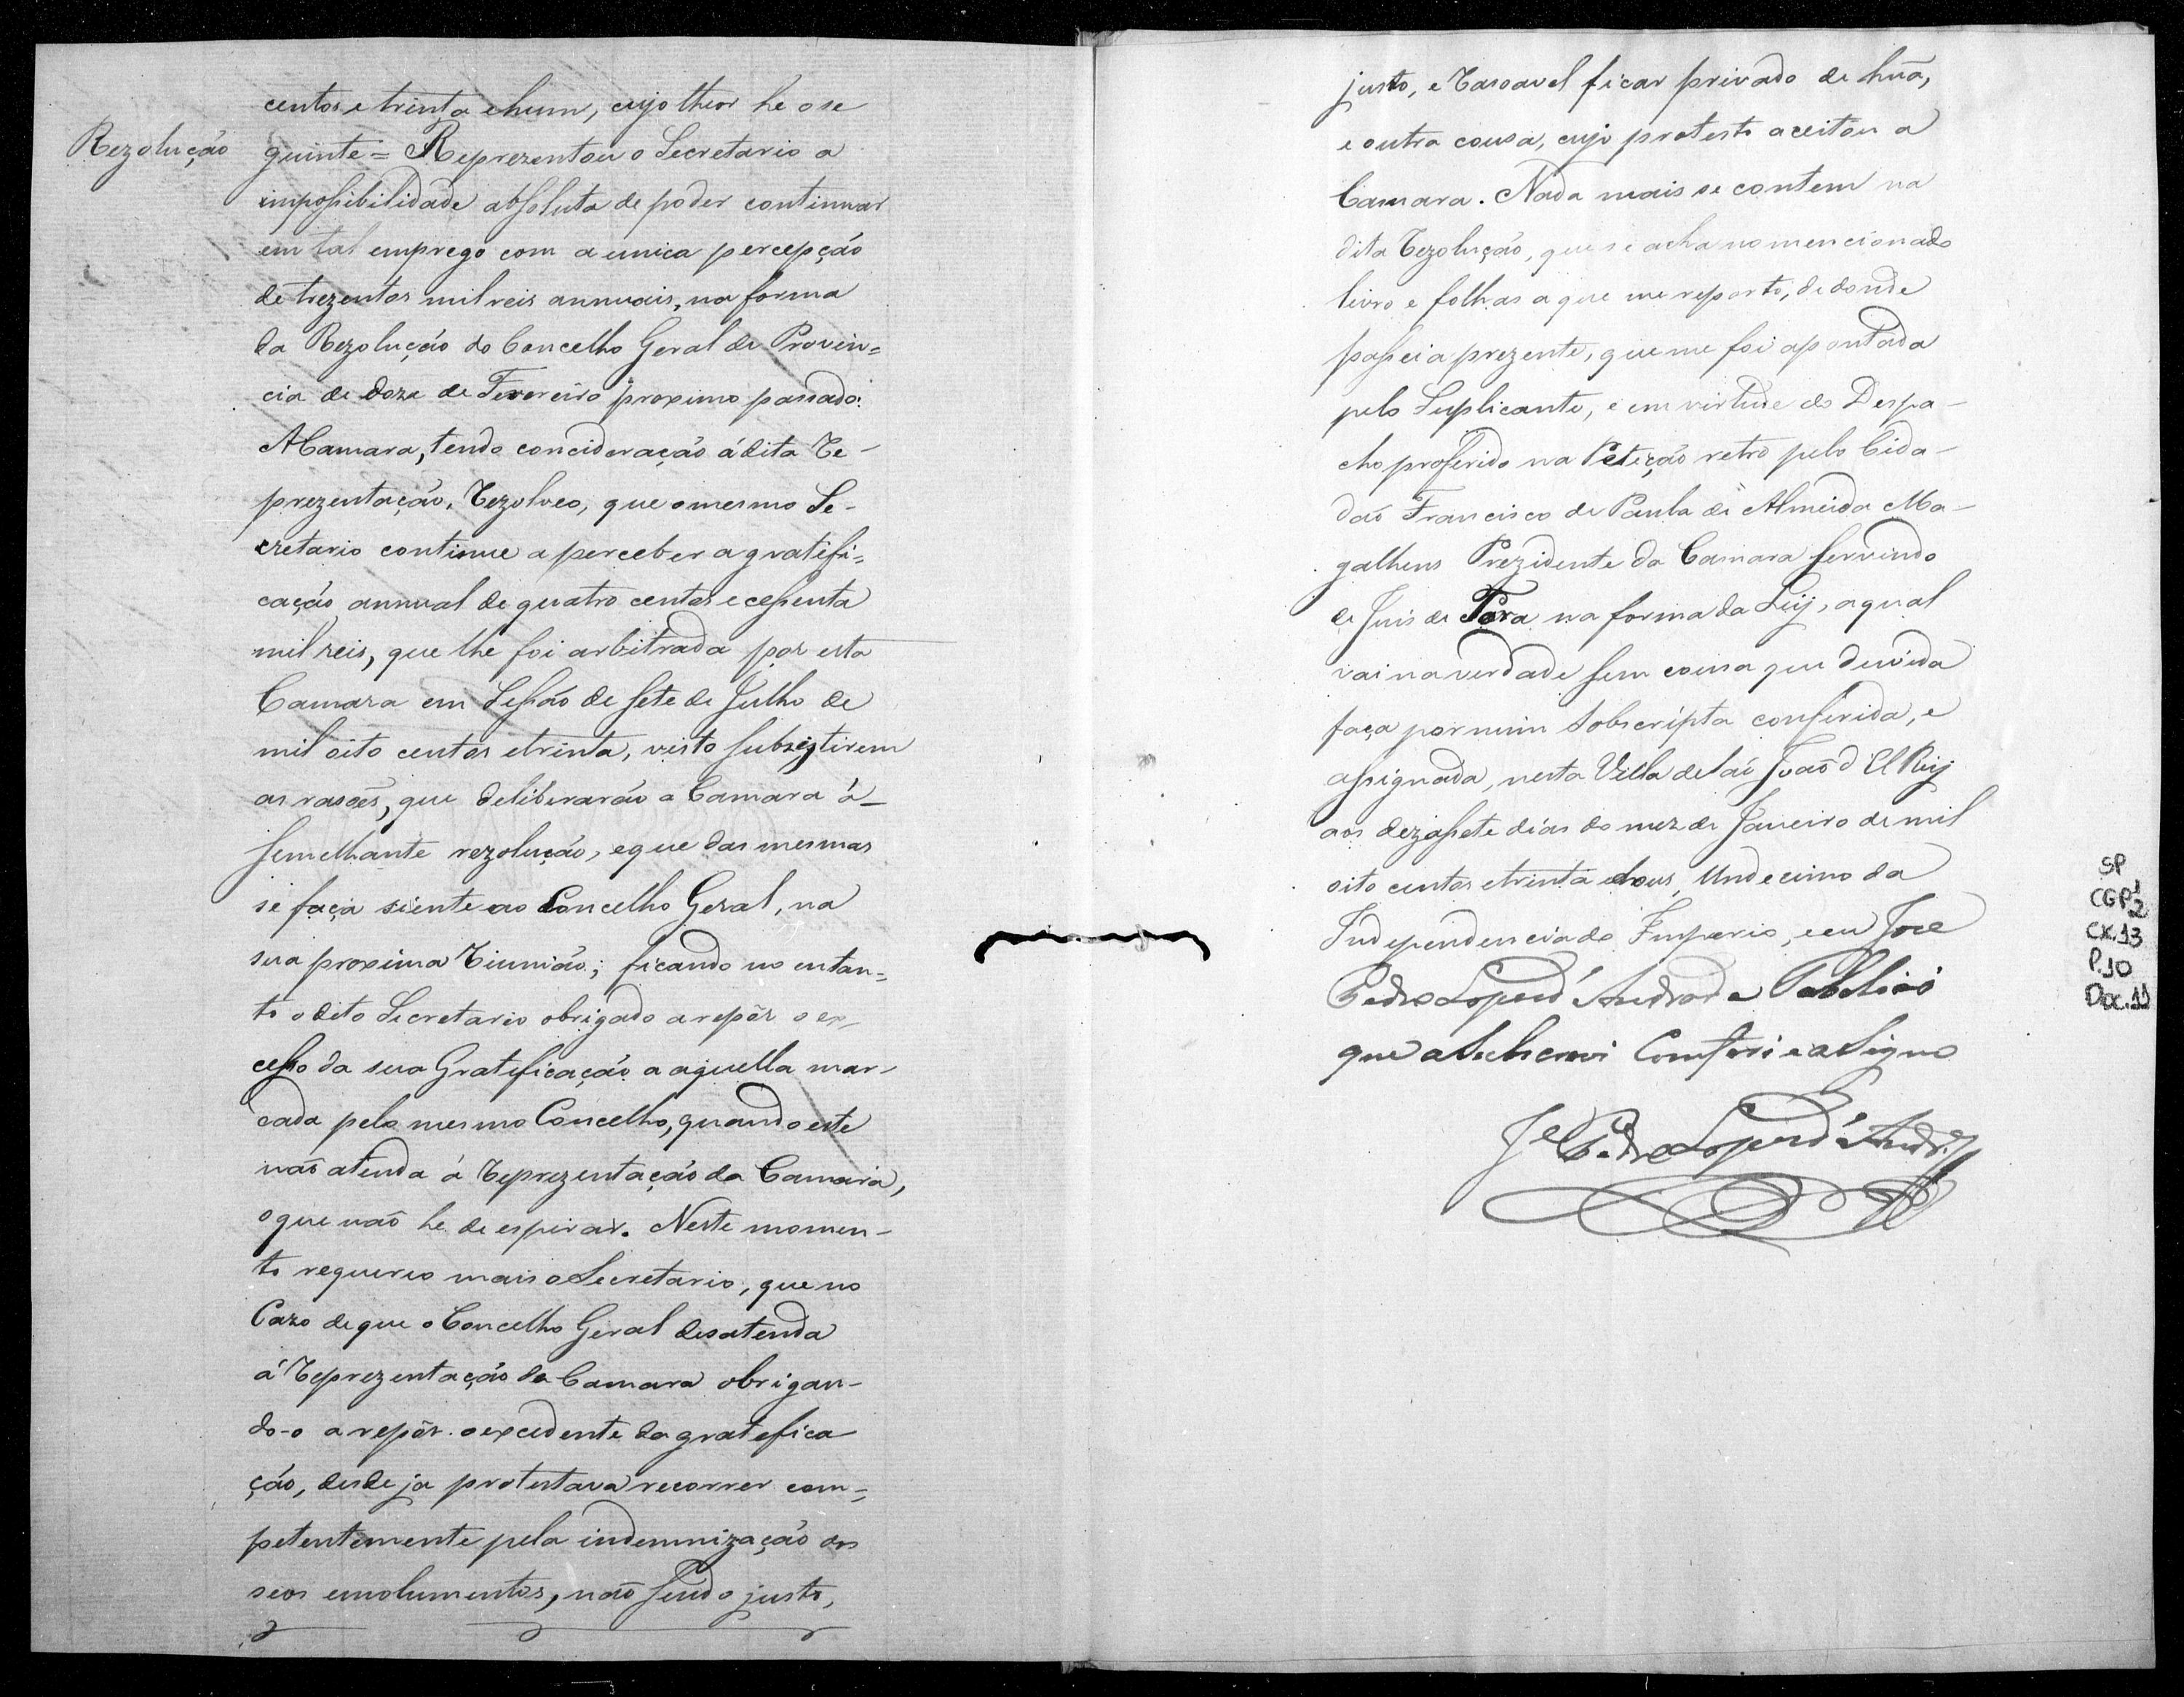 Rezolução
centos e trinta e hum, cujo theor he o se
guinte = Reprezentou o Secretario a
impossibilidade absoluta de poder continuar
em tal emprego com a unica percepção
de trezentos mil reis annuais, na forma
da Rezolução do Concelho Geral de Provin=
cia de doze de Fevereiro proximo passado:
A Camara, tendo concideração á dita Re-
prezentação, Rezolveo, que o mesmo Se-
cretario continue a perceber a gratifi=
cação annual de quatro centos e cessenta
mil reis, que lhe foi arbitrada por esta
Camara em Sessão de sete de Julho de
mil oito centos e trinta, visto subzistirem
as rasoẽs, que deliberarão a Camara á-
semelhante rezolução, e que das mesmas
se faça siente ao Concelho Geral, na
sua proxima Riunião; ficando no entan=
to o dito Secretario obrigado a repôr o ex-
cesso da sua Gratificação a aquella mar-
cada pelo mesmo Concelho, quando este
não atenda á Reprezentação da Camara,
o que não he de espirar. Neste momen-
to requereo mais o Secretario, que no
Cazo de que o Concelho Geral desatenda
á Reprezentação da Camara obrigan-
do-o a repôr o excedente da gratefica
ção, desde ja protestava recorrer com=
petentemente pela indemnização dos
seos emolumentos, não sendo justo,
justo, e Rasoavel ficar privado de huã,
e outra cousa, cujo protesto aceitou a
Camara. Nada mais se contem na
dita Rezolução, que se acha no mencionado
livro e folhas a que me reporto, de donde
passei a prezente, que me foi apontada
pelo Suplicante, e em virtude do Despa-
cho proferido na Petição retro pelo Cida-
dão Francisco de Paula de Almeida Ma-
galhens Prezidente da Camara servindo
de Juis de Fora na forma da Ley, a qual
vai na verdade sem cousa que duvida
faça por mim Sobscripta conferida, e
assignada, nesta Villa de São João d'El Rey
aos dezassete dias do mez de Janeiro de mil
oito centos e trinta e dous, Undecimo da
Independencia do Imperio, e eu Jose
Pedro Lopes d'Andrade Tabelião
que a Sobscrevi Conferi e aSigno
Je. Pedro Lopes d'Andre.
SP
CGP 1 2
CX.13
P.10
Doc.11